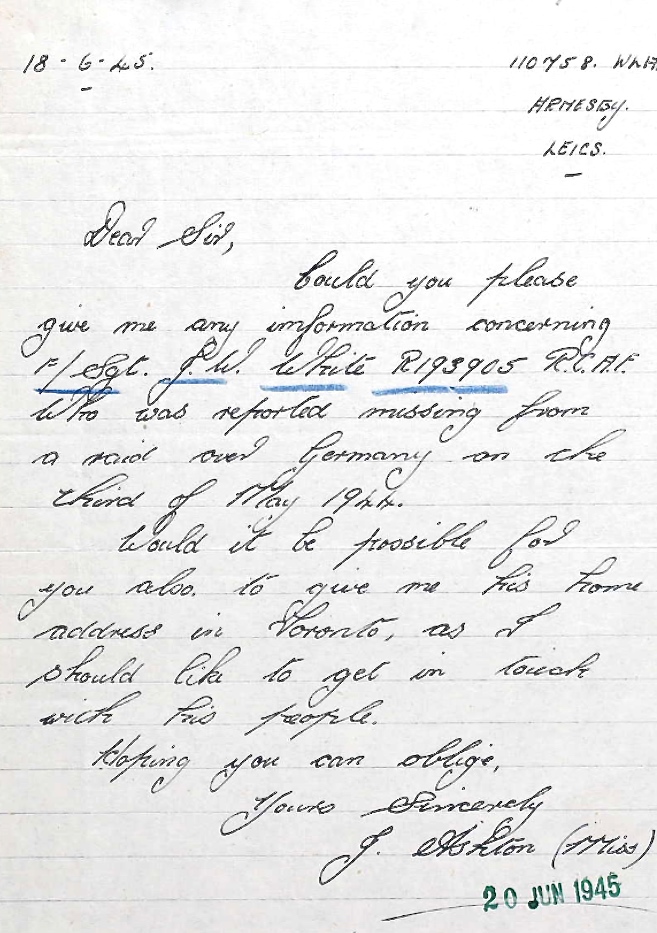 18-6-45. 110758. WLA
ARNESBY.
LEICS.
Dear Sir,
Could you please
give me any imformation concerning
F/Sgt. J.W. White R193905 R.C.A.F.
who was reported missing from
a raid over Germany on the
third of May 1944.
Would it be possible for
you also. to give me his home
address in Toronto, as I
should like to get in touch
with his people.
Hoping you can oblige,
Yours Sincerely
J. Ashton (Miss)
20 JUN 1945